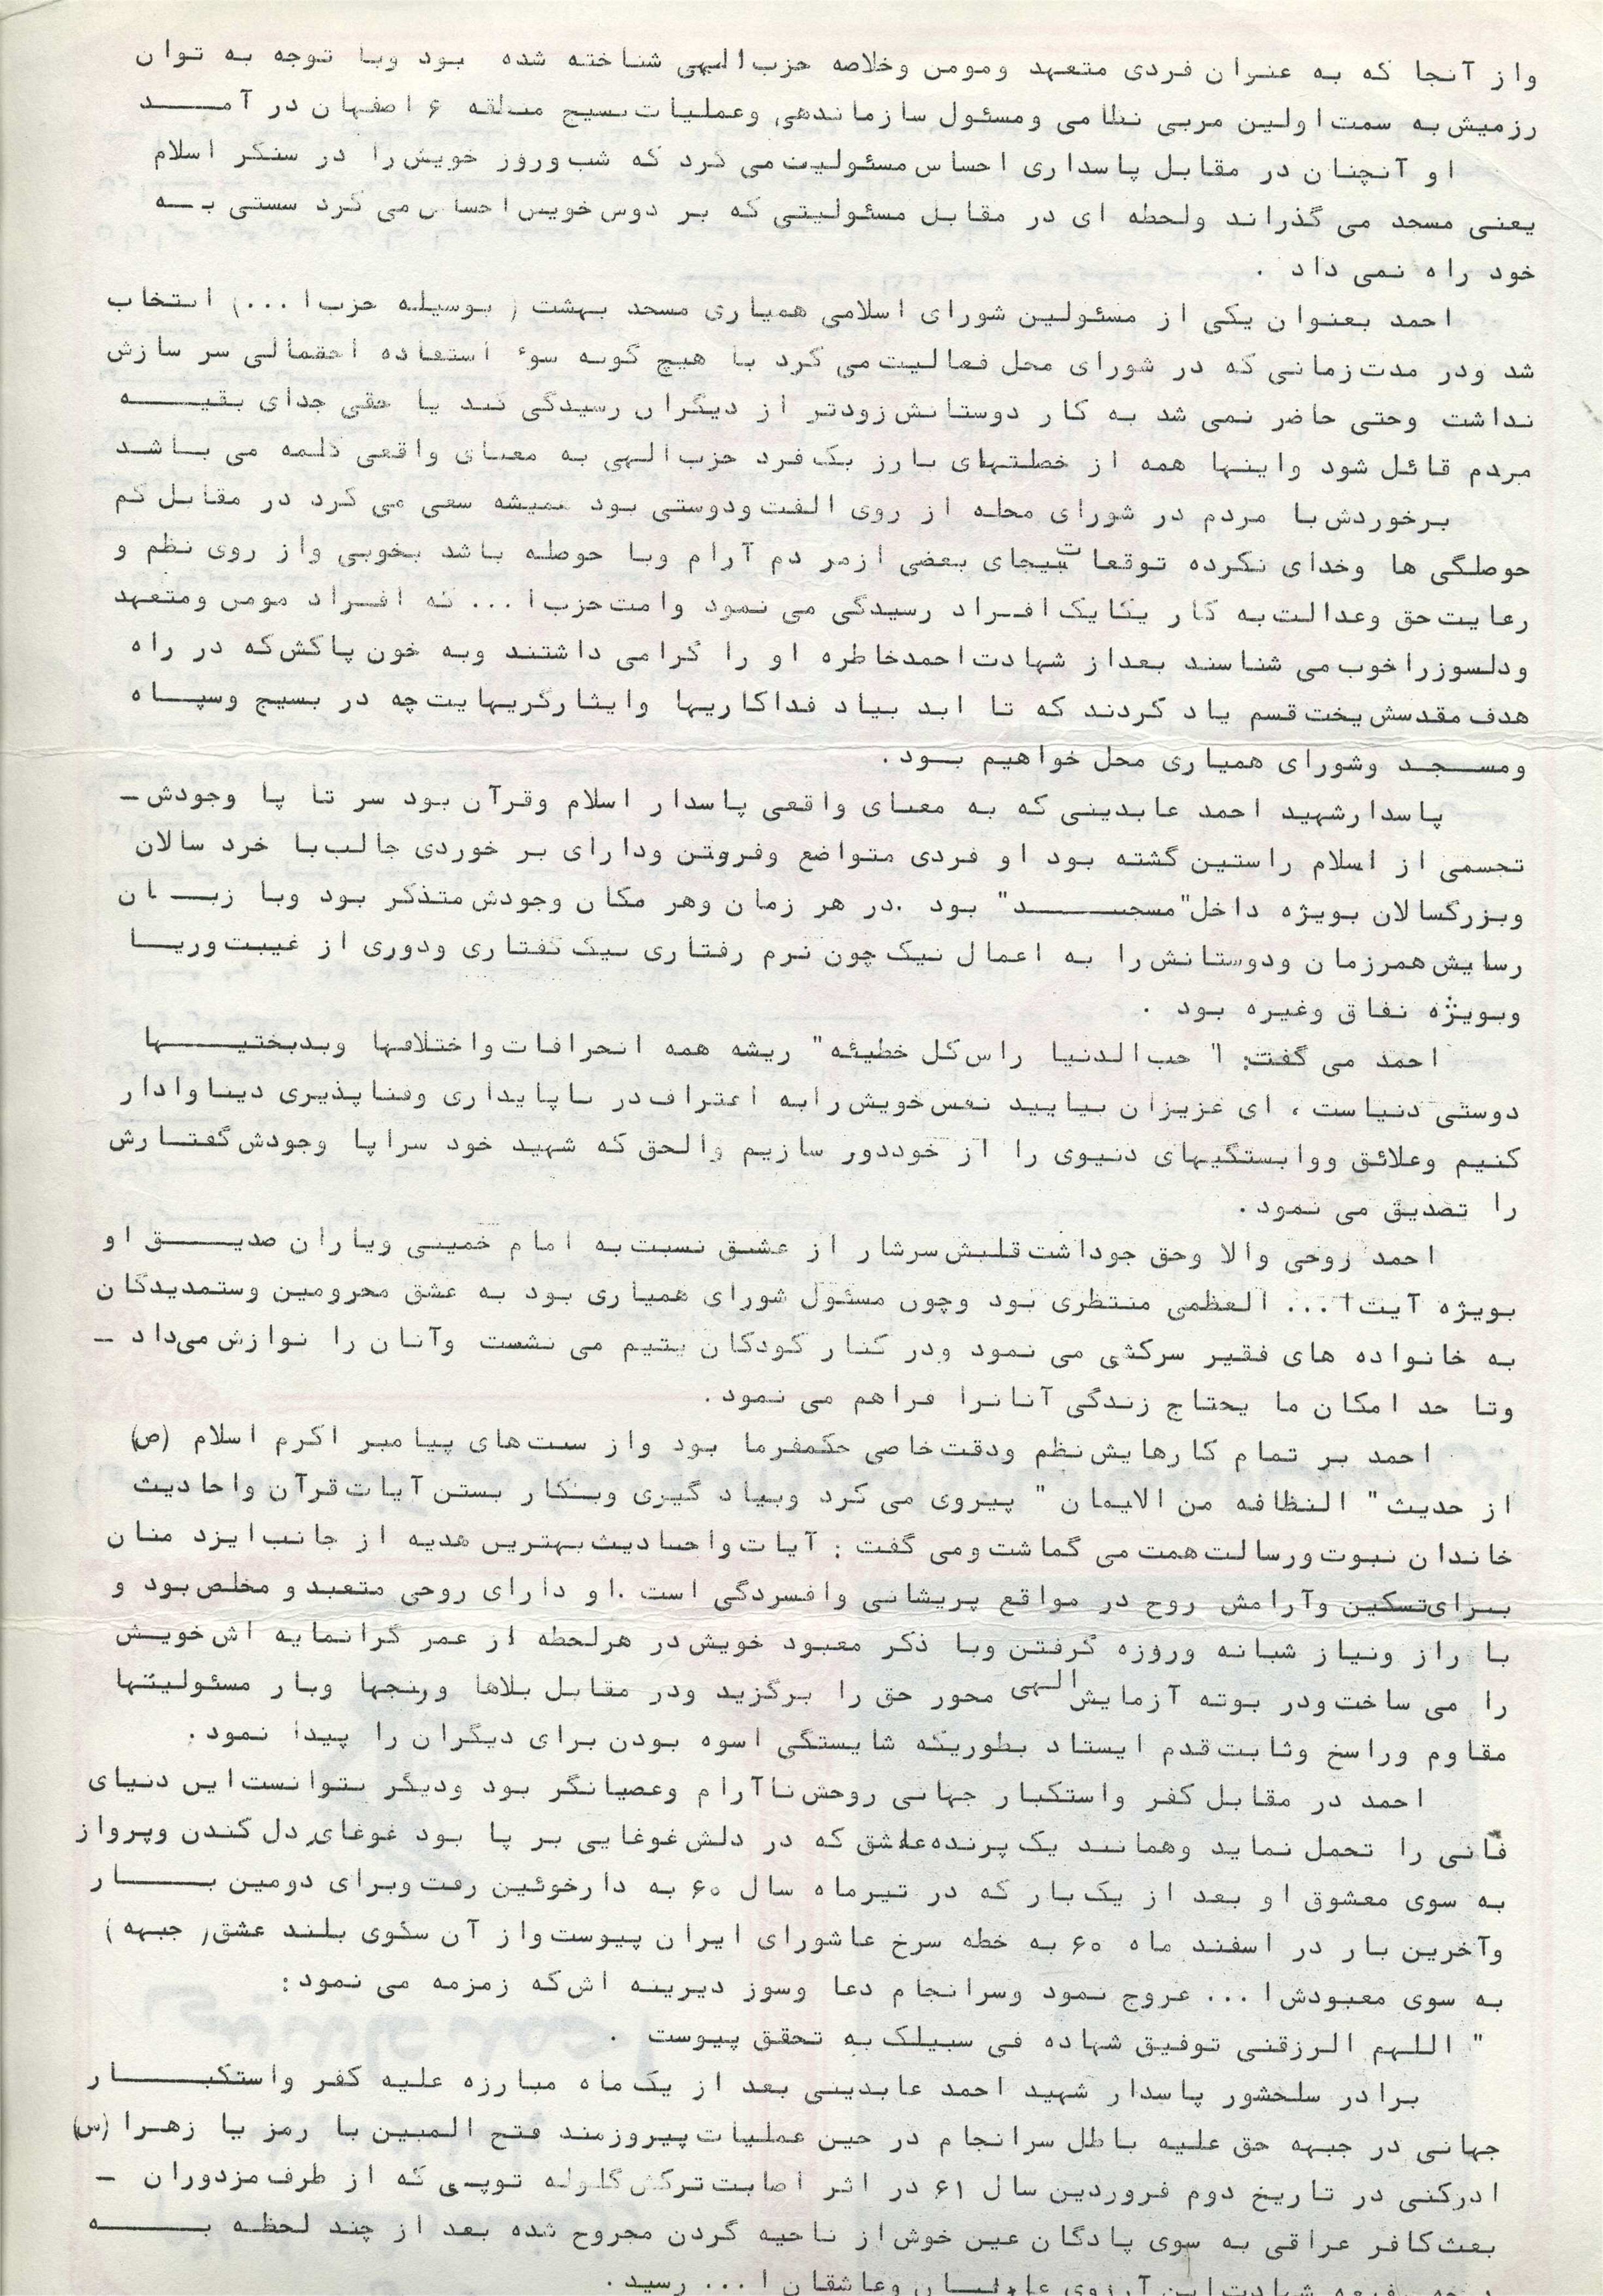 واز آنجا که به عنوان فردی متعهد ومومن وخلاصه حزب‌اللهی شناخته شده بود وبا توجه به توان
رزمیش به سمت اولین مربی نظامی ومسئول سازماندهی وعملیات بسیج منطقه ۶ اصفهان در آمد
او آنچنان در مقابل پاسداری احساس مسئولیت می کرد که شب وروز خویش را در سنگر اسلام
یعنی مسجد می گذراند ولحظه ای در مقابل مسئولیتی که بر دوس خویس احساس می کرد سستی به
خود راه نمی داد .
احمد بعنوان یکی از مسئولین شورای اسلامی همیاری مسجد بهشت ( بوسیله حزب ا ... ) انتخاب
شد ودر مدت زمانی که در شورای محل فعالیت می کرد با هیچ گونه سوء استفاده احتمالی سر سازش
نداشت وحتی حاضر نمی شد به کار دوستانش زودتر از دیگران رسیدگی کند یا حقی جدای بقیه
مردم قائل شود واینها همه از خصلتهای بارز یک فرد حزب الهی به معنای واقعی کلمه می باشد
برخوردش با مردم در شورای محله از روی الفت ودوستی بود همیشه سعی می کرد در مقابل کم
حوصلگی ها وخدای نکرده توقعات بیجای بعضی ازمر دم آرام وبا حوصله باشد بخوبی واز روی نظم و
رعایت حق وعدالت به کار یکایک افراد رسیدگی می نمود وامت حزب ا ... که افراد مومن ومتعهد
ودلسوز را خوب می شناسند بعداز شهادت احمدخاطره او را گرامی داشتند وبه خون پاکش که در راه
هدف مقدسش یخت قسم یاد کردند که تا ابد بیاد فداکاریها وایثارگریهایت چه در بسیج وسپاه
ومسجد وشورای همیاری محل خواهیم بود .
پاسدارشهید احمد عابدینی که به معنای واقعی پاسدار اسلام وقرآن بود سر تا پا وجودش ـ
تجسمی از اسلام راستین گشته بود او فردی متواضع وفروتن ودارای بر خوردی جالب با خرد سالان
وبزرگسالان بویژه داخل "مسجد" بود .در هر زمان وهر مکان وجودش متذکر بود وبا زبان
رسایش همرزمان ودوستانش را به اعمال نیک چون نرم رفتاری نیک گفتاری ودوری از غیبت وریا
وبویژه نفاق وغیره بود .
احمد می گفت: " حب الدنیا راس کل خطیئه " ریشه همه انحرافات واختلافها وبدبختیها
دوستی دنیاست ، ای عزیزان بیایید نفس خویش رابه اعتراف در ناپایداری وفناپذیری دنیا وادار
کنیم وعلائق ووابستگیهای دنیوی را از خوددور سازیم والحق که شهید خود سراپا وجودش گفتارش
را تصدیق می نمود .
احمد روحی والا وحق جوداشت قلبش سرشار از عشق نسبت به امام خمینی ویاران صدیق او
بویژه آیت ا ... العظمی منتظری بود وچون مسئول شورای همیاری بود به عشق محرومین وستمدیدگان
به خانواده های فقیر سرکشی می نمود ودر کنار کودکان یتیم می نشست وآنان را نوازش می‌داد ـ
وتا حد امکان ما یحتاج زندگی آنانرا فراهم می نمود .
احمد بر تمام کارهایش نظم ودقت خاصی حکمفرما بود واز سنت‌های پیامبر اکرم اسلام (ص)
از حدیث " النظافه من الایمان " پیروی می کرد وبیاد گیری وبکار بستن آیات قرآن واحادیث
خاندان نبوت ورسالت همت می گماشت ومی گفت : آیات واحادیث بهترین هدیه از جانب ایزد منان
برای تسکین وآرامش روح در مواقع پریشانی وافسردگی است .او دارای روحی متعبد و مخلص بود و
با راز ونیاز شبانه وروزه گرفتن وبا ذکر معبود خویش در هرلحظه از عمر گرانمایه اش خویش
را می ساخت ودر بوته آزمایش الهی محور حق را برگزید ودر مقابل بلاها ورنجها وبار مسئولیتها
مقاوم وراسخ وثابت قدم ایستاد بطوریکه شایستگی اسوه بودن برای دیگران را پیدا نمود .
احمد در مقابل کفر واستکبار جهانی روحش ناآرام وعصیانگر بود ودیگر نتوانست این دنیای
فانی را تحمل نماید وهمانند یک پرنده عاشق که در دلش غوغایی بر پا بود غوغای دل کندن وپرواز
به سوی معشوق او بعد از یک بار که در تیرماه سال ۶۰ به دارخوئین رفت وبرای دومین بار
وآخرین بار در اسفند ماه ۶۰ به خطه سرخ عاشورای ایران پیوست واز آن سکوی بلند عشق ( جبهه )
به سوی معبودش ا ... عروج نمود وسرانجام دعا وسوز دیرینه اش که زمزمه می نمود :
" اللهم الرزقنی توفیق شهاده فی سبیلک به تحقق پیوست .
برادر سلحشور پاسدار شهید احمد عابدینی بعد از یک ماه مبارزه علیه کفر واستکبار
جهانی در جبهه حق علیه باطل سرانجام در حین عملیات پیروزمند فتح المبین با رمز یا زهرا (س)
ادرکنی در تاریخ دوم فروردین سال ۶۱ در اثر اصابت ترکش گلوله توپی که از طرف مزدوران ـ
بعث کافر عراقی به سوی پادگان عین خوش از ناحیه گردن مجروح شده بعد از چند لحظه به
شهادت این آرزوی وعاشقان ا ... رسید .